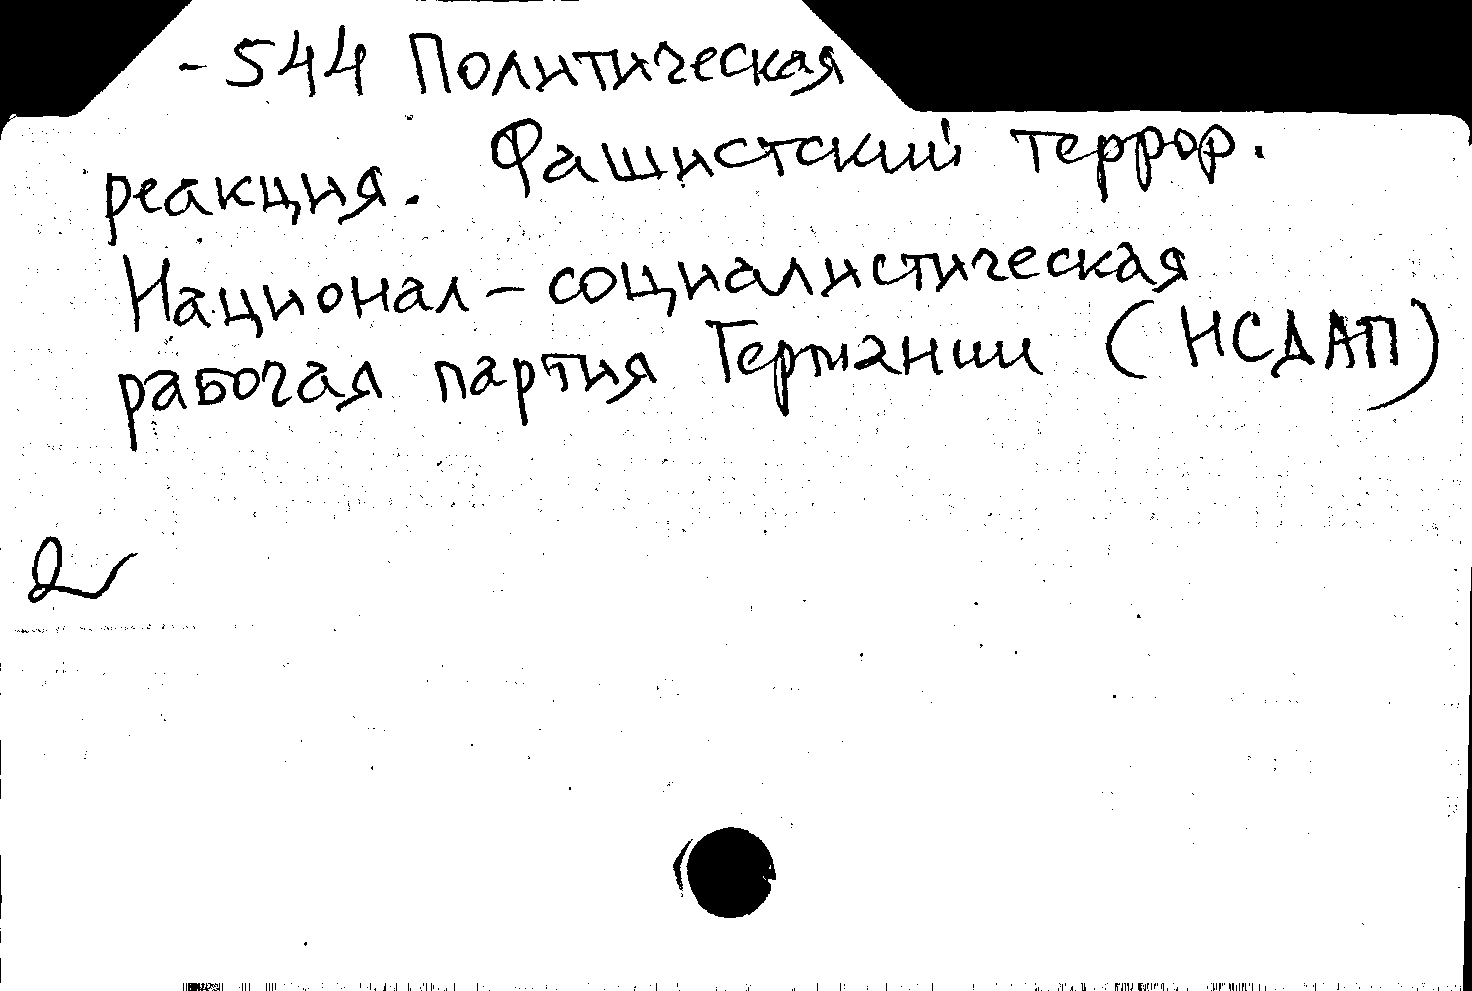 -544 Политическая
реакция. Фашистский террор.
Национал-социалистическая
рабочая партия Германии (НСДАП)